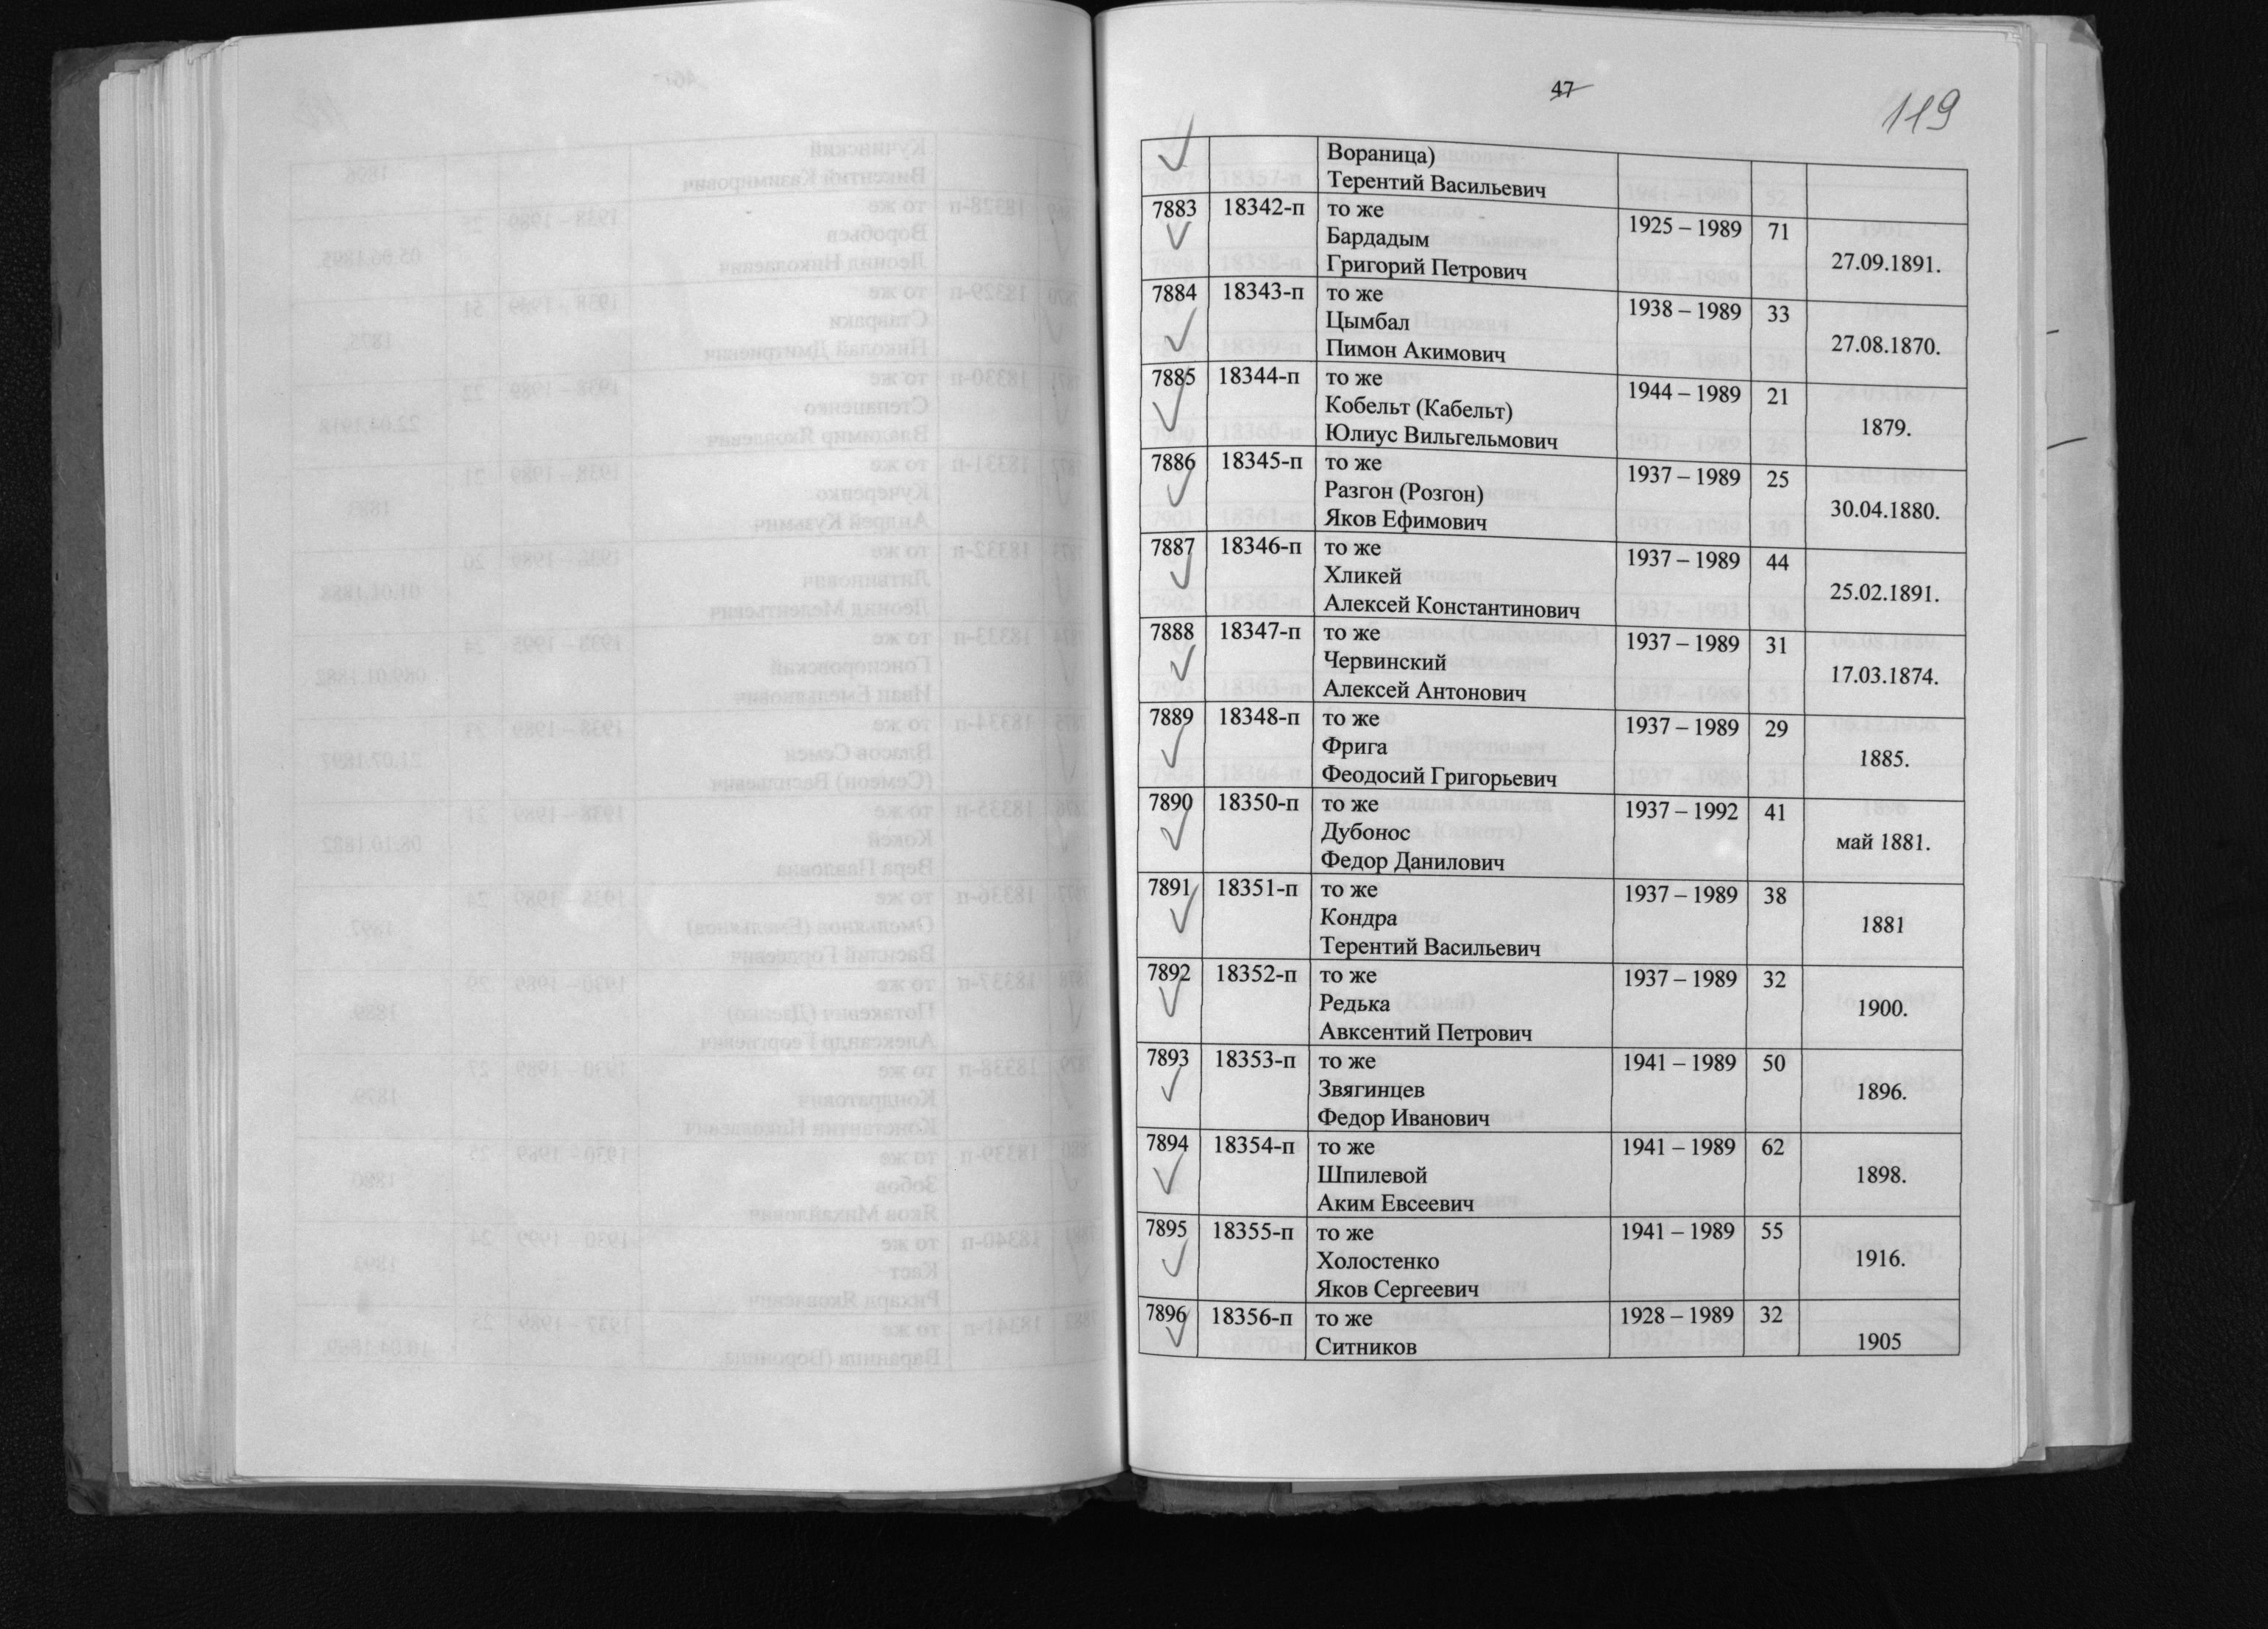 47
119
Вораница)
Терентий Васильевич
7883 18342-п то же 1925 – 1989 71 27.09.1891.
Бардадым
Григорий Петрович
7884 18343-п то же 1938 – 1989 33 27.08.1870.
Цымбал
Пимон Акимович
7885 18344-п то же 1944 – 1989 21 1879.
Кобельт (Кабельт)
Юлиус Вильгельмович
7886 18345-п то же 1937 – 1989 25 30.04.1880.
Разгон (Розгон)
Яков Ефимович
7887 18346-п то же 1937 – 1989 44 25.02.1891.
Хликей
Алексей Константинович
7888 18347-п то же 1937 – 1989 31 17.03.1874.
Червинский
Алексей Антонович
7889 18348-п то же 1937 – 1989 29 1885.
Фрига
Феодосий Григорьевич
7890 18350-п то же 1937 – 1992 41 май 1881.
Дубонос
Федор Данилович
7891 18351-п то же 1937 – 1989 38 1881
Кондра
Терентий Васильевич
7892 18352-п то же 1937 – 1989 32 1900.
Редька
Авксентий Петрович
7893 18353-п то же 1941 – 1989 50 1896.
Звягинцев
Федор Иванович
7894 18354-п то же 1941 – 1989 62 1898.
Шпилевой
Аким Евсеевич
7895 18355-п то же 1941 – 1989 55 1916.
Холостенко
Яков Сергеевич
7896 18356-п то же 1928 – 1989 32 1905
Ситников